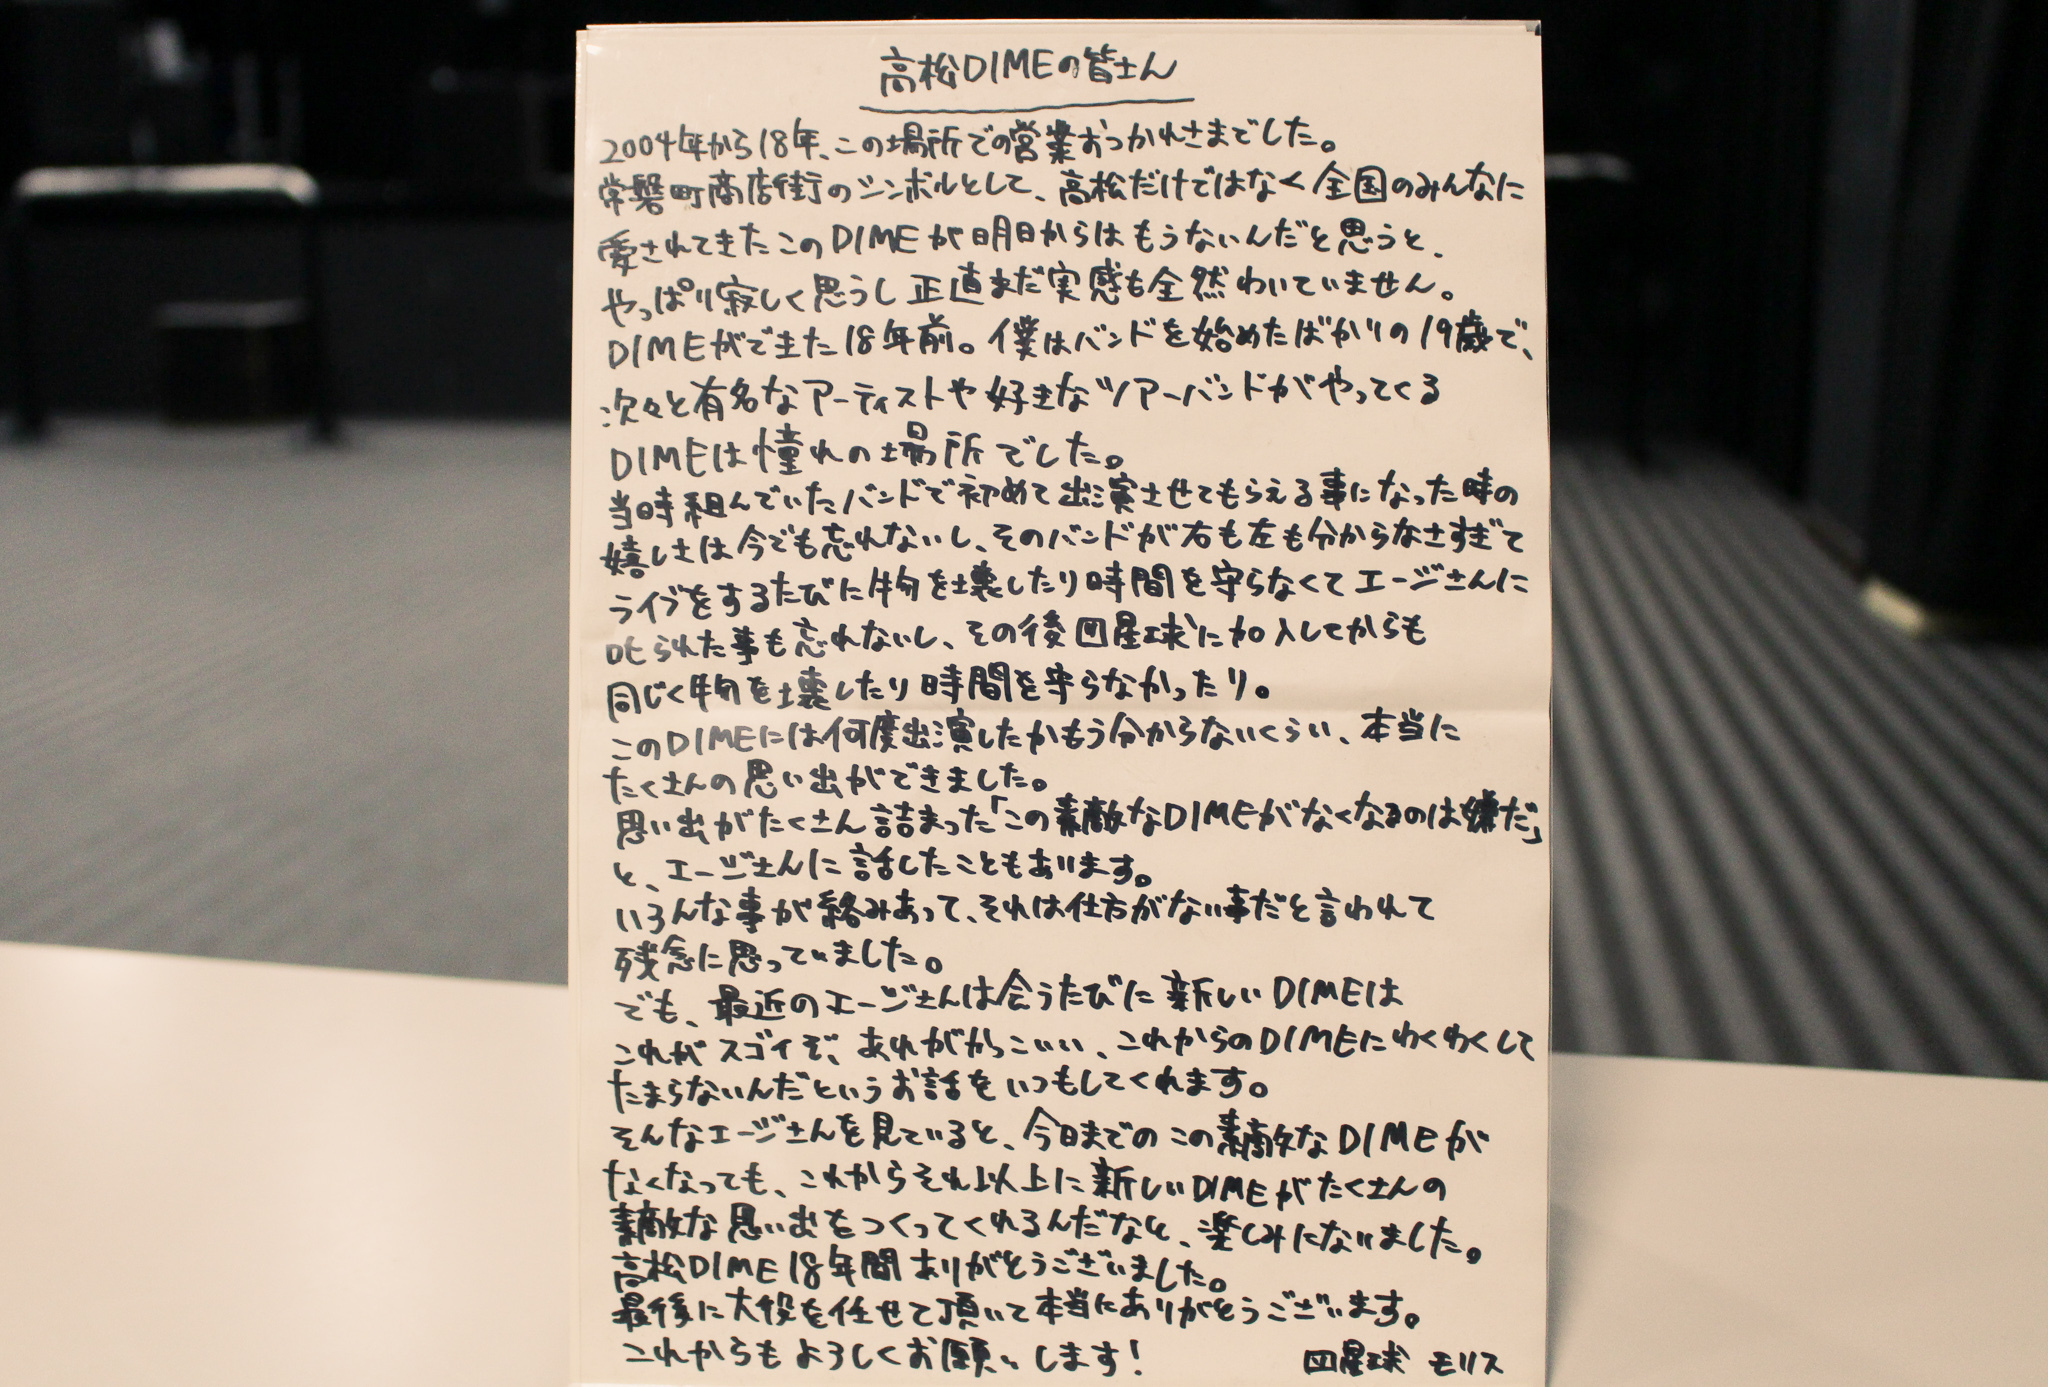 高松DIMEの皆さん
2004年から18年、この場所での営業おつかれさまでした。
常磐町商店街のシンボルとして、高松だけではなく全国のみんなに
愛されてきたこのDIMEが明日からはもうないんだと思うと、
やっぱり寂しく思うし正直まだ実感も全然わいていません。
DIMEができた18年前。僕はバンドを始めたばかりの19歳で、
次々と有名なアーティストや好きなツアーバンドがやってくる
DIMEは憧れの場所でした。
当時組んでいたバンドで初めて出演させてもらえる事になった時の
嬉しさは今でも忘れないし、そのバンドが右も左も分からなさすぎて
ライブをするたびに物を壊したり時間を守らなくてエージさんに
叱られた事も忘れないし、その後四星球に加入してからも
同じく物を壊したり時間を守らなかったり。
このDIMEには何度出演したかもう分からないくらい、本当に
たくさんの思い出ができました。
思い出がたくさん詰まった「この素敵なDIMEがなくなるのは嫌だ」
と、エージさんに話したこともあります。
いろんな事が絡みあって、それは仕方がない事だと言われて
残念に思っていました。
でも、最近のエージさんは会うたびに新しいDIMEは
これがスゴイぞ、あれがかっこいい、これからのDIMEにわくわくして
たまらないんだというお話をいつもしてくれます。
そんなエージさんを見ていると、今日までのこの素敵なDIMEが
なくなっても、これからそれ以上に新しいDIMEがたくさんの
素敵な思い出をつくってくれるんだなと、楽しみになりました。
高松DIME18年間ありがとうございました。
最後に大役を任せて頂いて本当にありがとうございます。
これからもよろしくお願いします！
四星球 モリス